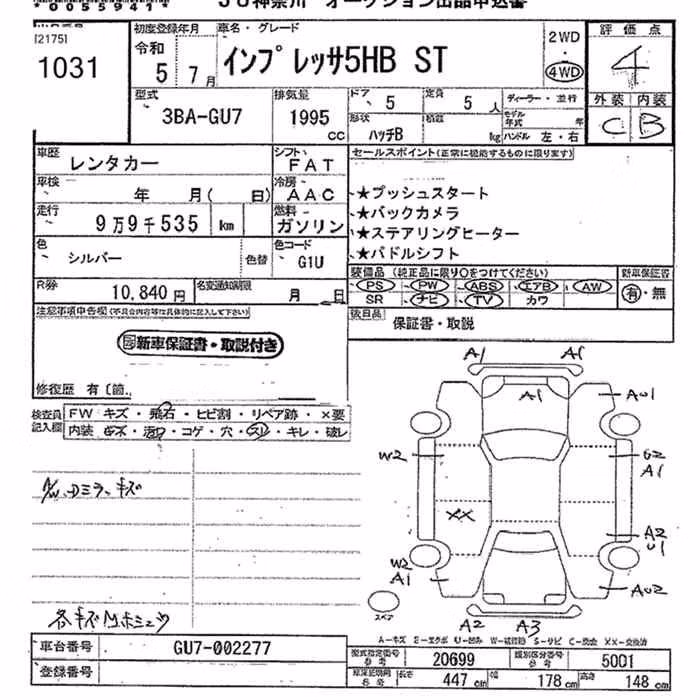 *0059541*
JU神奈川 オークション出品申込書
[2175]
1031
初度登録年月
令和
5年 7月
車名・グレード
インプレッサ5HB ST
2WD
・
4WD
評価点
4
外装 内装
C B
型式
3BA-GU7
排気量
1995
CC
ドア
5
定員
5人
ディーラー・並行
形状
ハッチB
積載
kg
モデル年式 年
ハンドル 左・右
車歴
レンタカー
シフト
FAT
車検
年 月( 日)
冷房
AAC
走行
9万9千535 km
燃料
ガソリン
色
シルバー
色替
色コード
G1U
R券
10,840円
名変通知期限
月 日
セールスポイント(正常に機能するものに限ります)
★プッシュスタート
★バックカメラ
★ステアリングヒーター
★パドルシフト
装備品 (純正品に限り○をつけてください)
PS PW ABS エアB AW
SR ナビ TV カワ
新車保証書
有・無
後日品
保証書・取説
注意事項申告欄(不具合内容等は具体的に記入して下さい)
新車保証書・取説付き
修復歴 有〔箇
検査員記入欄
FW キズ・飛石・ヒビ割・リペア跡・×要
内装 キズ・汚れ・コゲ・穴・スレ・キレ・破レ
A/W、Dミラーキズ
A1 A1
A1
AU1
W2
G2
A1
XX
A2
U1
W2
A1
AU2
スペア
A2 A3
A-キズ E-エクボ U-凹み W-波修理 S-サビ C-腐食 XX-交換済
車台番号
GU7-002277
登録番号
型式指定番号
参考
20699
類別区分番号
参考
5001
車庫証明用
参考
長さ
447 cm
幅
178 cm
高さ
148 cm